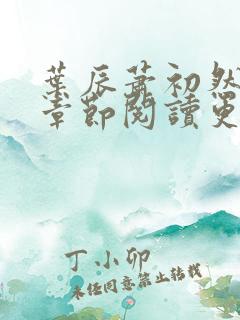 葉辰蕭初然
章節閱讀更
丁小卯
未经同意禁止转载